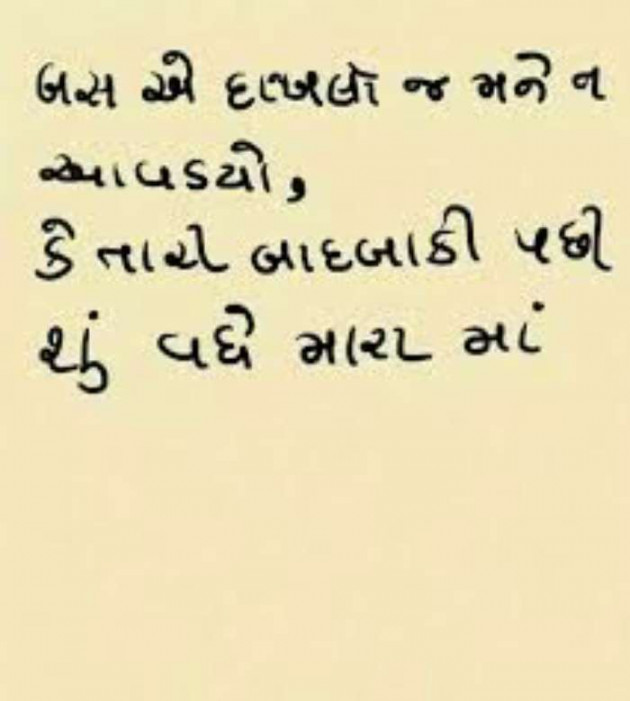 બસ એ દાખલો જ મને ન
આવડયો,
કે તારી બાદબાકી પછી
શું વધે મારા માં